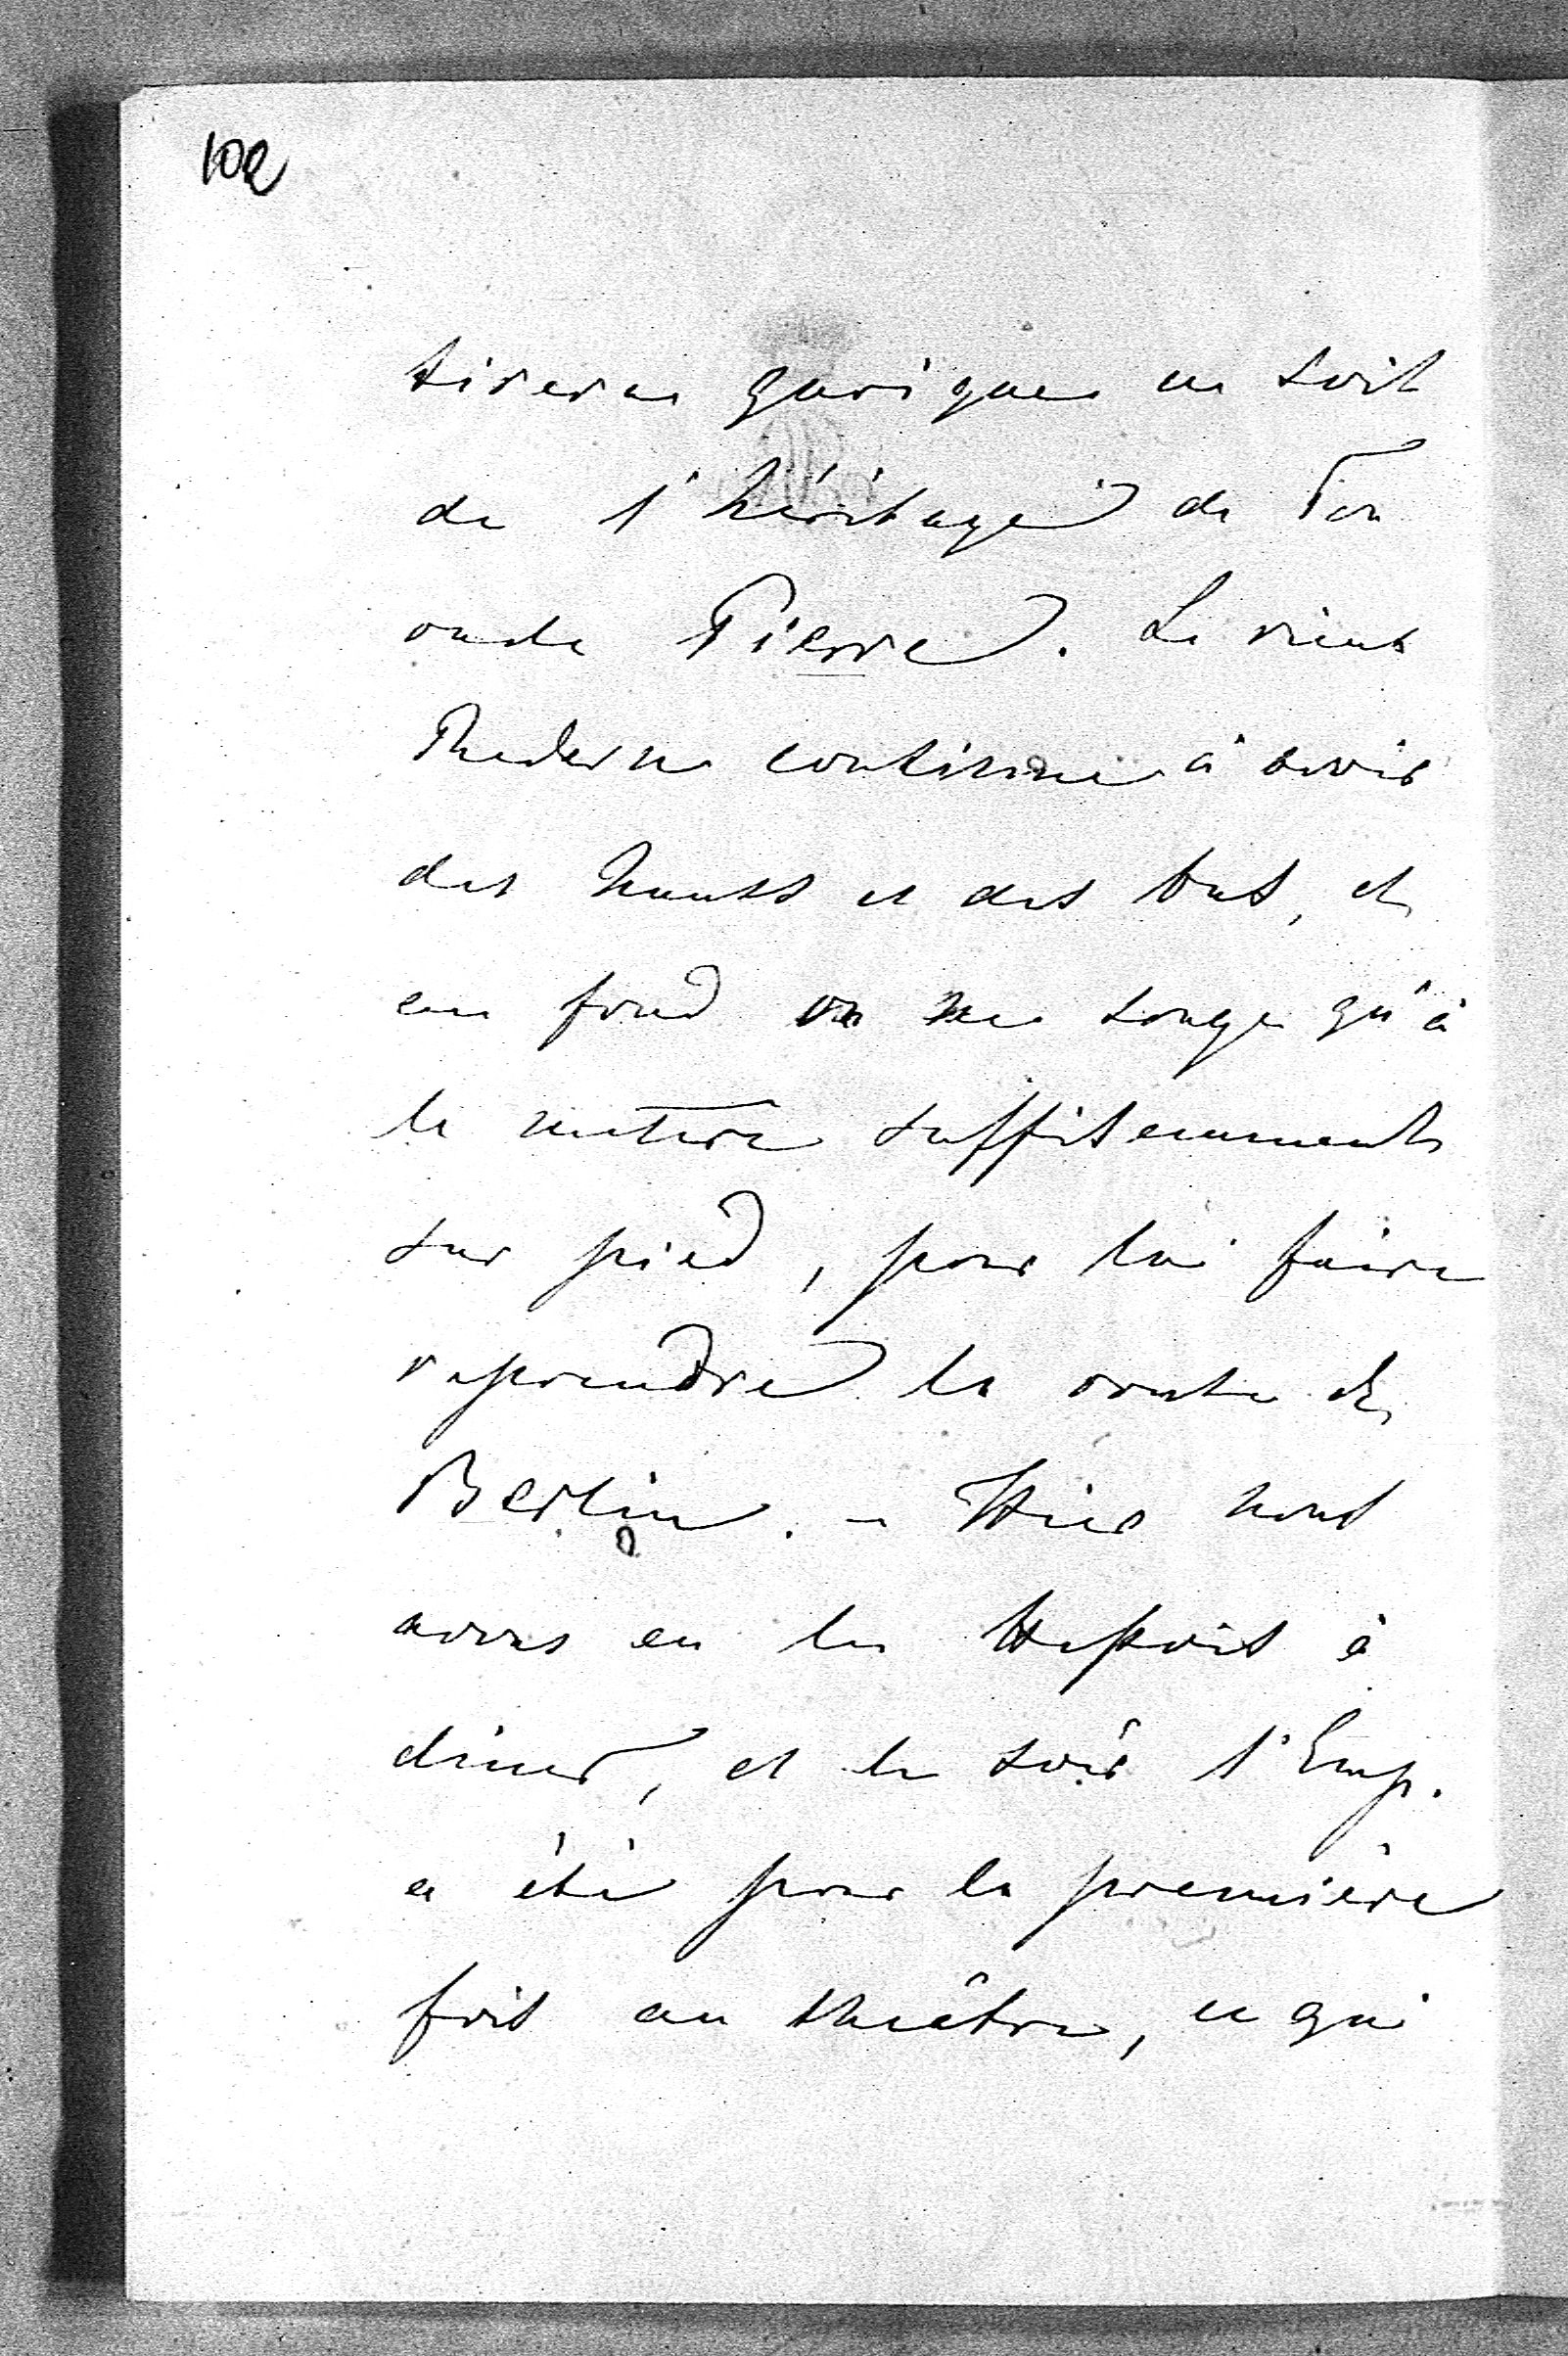 102
tireras quoique ce soit
de l'héritage de Ton
oncle Pierre. Le vieux
Redern continue à avoir
des hauts et des bas, et
au fond on ne songe qu'à
le mettre suffisamment
sur pied, pour lui faire
reprendre la route de
Berlin. – Hier nous
avons eu les à
dîner, et le soir l'Emp.
a été pour la première
fois au théâtre, ce qui